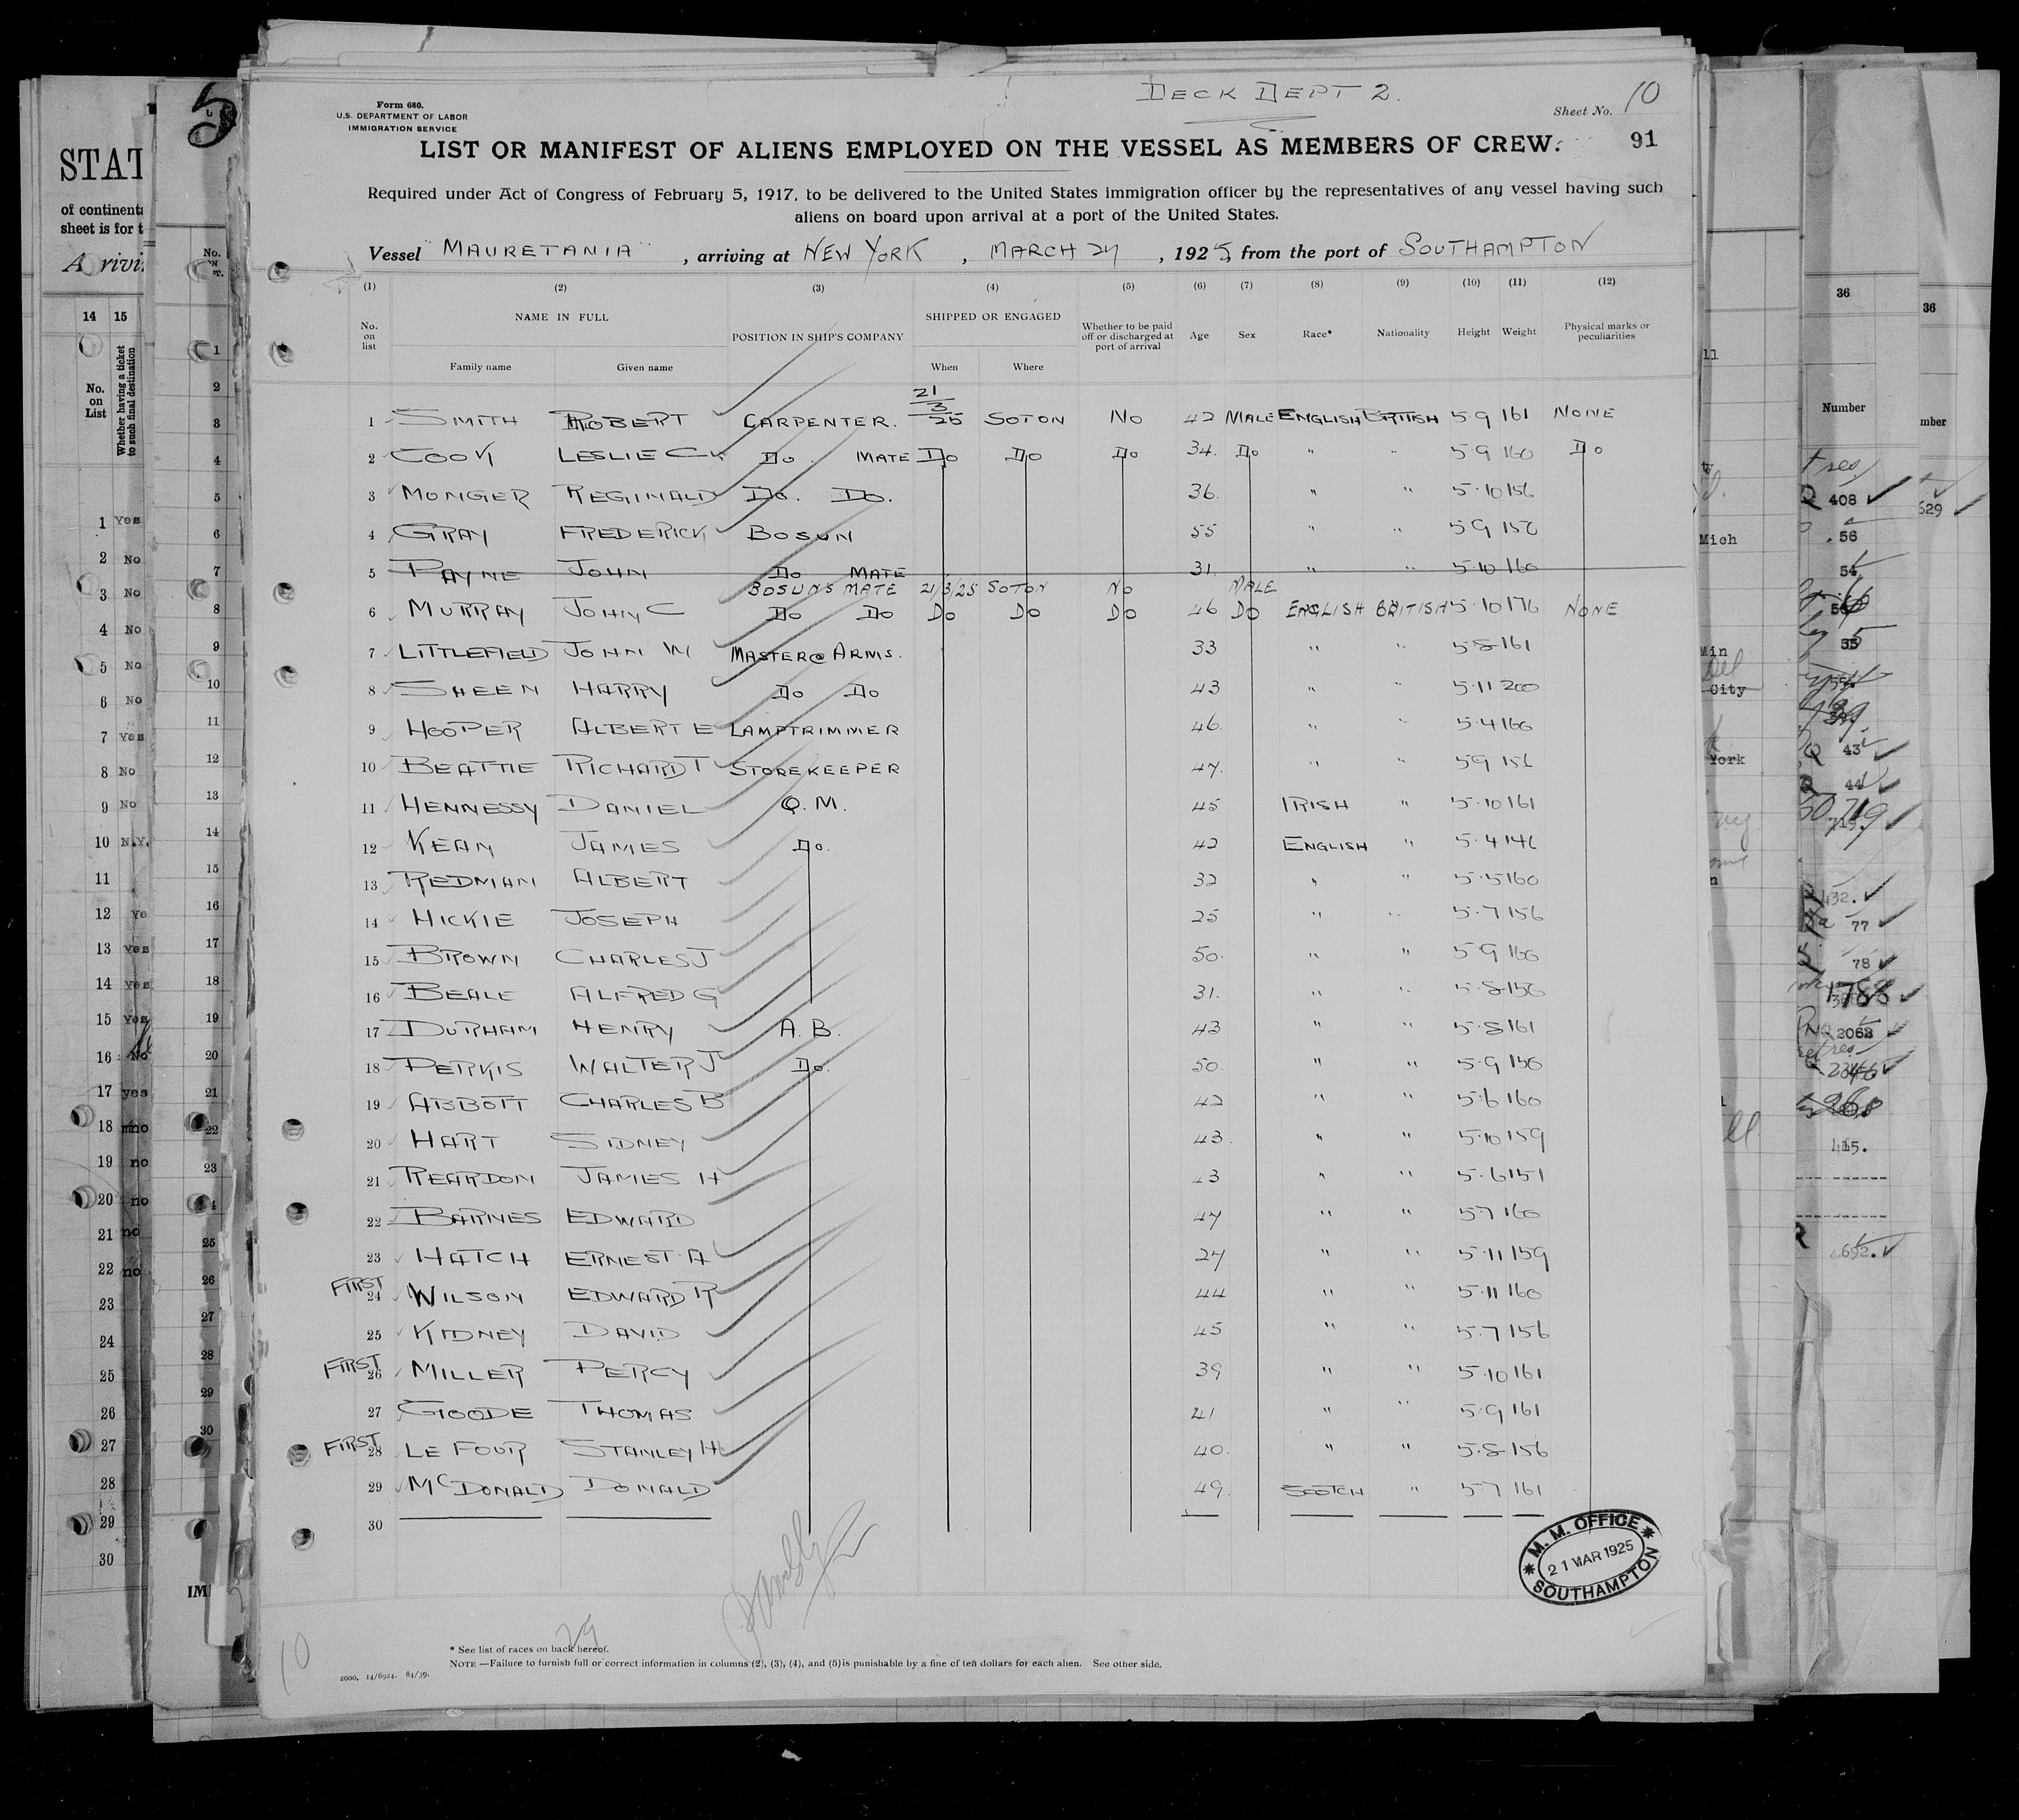 DECK DEPT 2.
Form 680.
U.S. DEPARTMENT OF LABOR
IMMIGRATION SERVICE
Sheet No. 10
91
LIST OR MANIFEST OF ALIENS EMPLOYED ON THE VESSEL AS MEMBERS OF CREW.
Required under Act of Congress of February 5, 1917, to be delivered to the United States immigration officer by the representatives of any vessel having such
aliens on board upon arrival at a port of the United States.
Vessel "MAURETANIA", arriving at NEW YORK, MARCH 27, 1925, from the port of SOUTHAMPTON
(1) (2) (3) (4) (5) (6) (7) (8) (9) (10) (11) (12)
No. on list NAME IN FULL POSITION IN SHIP'S COMPANY SHIPPED OR ENGAGED Whether to be paid off or discharged at port of arrival Age Sex Race* Nationality Height Weight Physical marks or peculiarities
Family name Given name When Where
1 SMITH ROBERT CARPENTER. 21/3/25 SOTON NO 42 MALE ENGLISH BRITISH 5 9 161 NONE
2 COOK LESLIE C. DO. MATE DO DO DO 34. DO " " 5·9 160 DO
3 MONGER REGINALD DO. DO. 36. " " 5·10 156
4 GRAY FREDERICK BOSUN 55 " " 5 9 156
5 PAYNE JOHN DO MATE 31. " " 5·10 160
BOSUNS MATE 21/3/25 SOTON NO MALE
6 MURRAY JOHN C DO DO DO DO DO 46 DO ENGLISH BRITISH 5·10 176 NONE
7 LITTLEFIELD JOHN W MASTER@ARMS. 33 " " 5·8 161
8 SHEEN HARRY DO DO 43 " " 5·11 200
9 HOOPER ALBERT E LAMPTRIMMER 46. " " 5·4 160
10 BEATTIE RICHARD T STOREKEEPER 47. " " 5 9 156
11 HENNESSY DANIEL Q.M. 45 IRISH " 5·10 161
12 KEAN JAMES DO. 42 ENGLISH " 5·4 146
13 REDMAN ALBERT 32 " " 5·5 160
14 HICKIE JOSEPH 25 " " 5·7 156
15 BROWN CHARLES J 50. " " 5·9 160
16 BEALE ALFRED G 31. " " 5·8 156
17 DURHAM HENRY A.B. 43 " " 5·8 161
18 PERKIS WALTER J DO. 50. " " 5·9 150
19 ABBOTT CHARLES B 42 " " 5·6 160
20 HART SIDNEY 43. " " 5·10 159
21 REARDON JAMES H 43 " " 5·6 151
22 BARNES EDWARD 47 " " 5 7 160
23 HATCH ERNEST A 27 " " 5·11 159
FIRST 24 WILSON EDWARD R 44 " " 5·11 160
25 KIDNEY DAVID 45 " " 5·7 156
FIRST 26 MILLER PERCY 39 " " 5·10 161
27 GOODE THOMAS 41 " " 5·9 161
FIRST 28 LE FOUR STANLEY H 40. " " 5·8 156
29 McDONALD DONALD 49. SCOTCH " 5·7 161
30
M. M. OFFICE
21 MAR 1925
SOUTHAMPTON
29
10
* See list of races on back hereof.
NOTE —Failure to furnish full or correct information in columns (2), (3), (4), and (5) is punishable by a fine of ten dollars for each alien. See other side.
2000. 14/6924. 84/39.